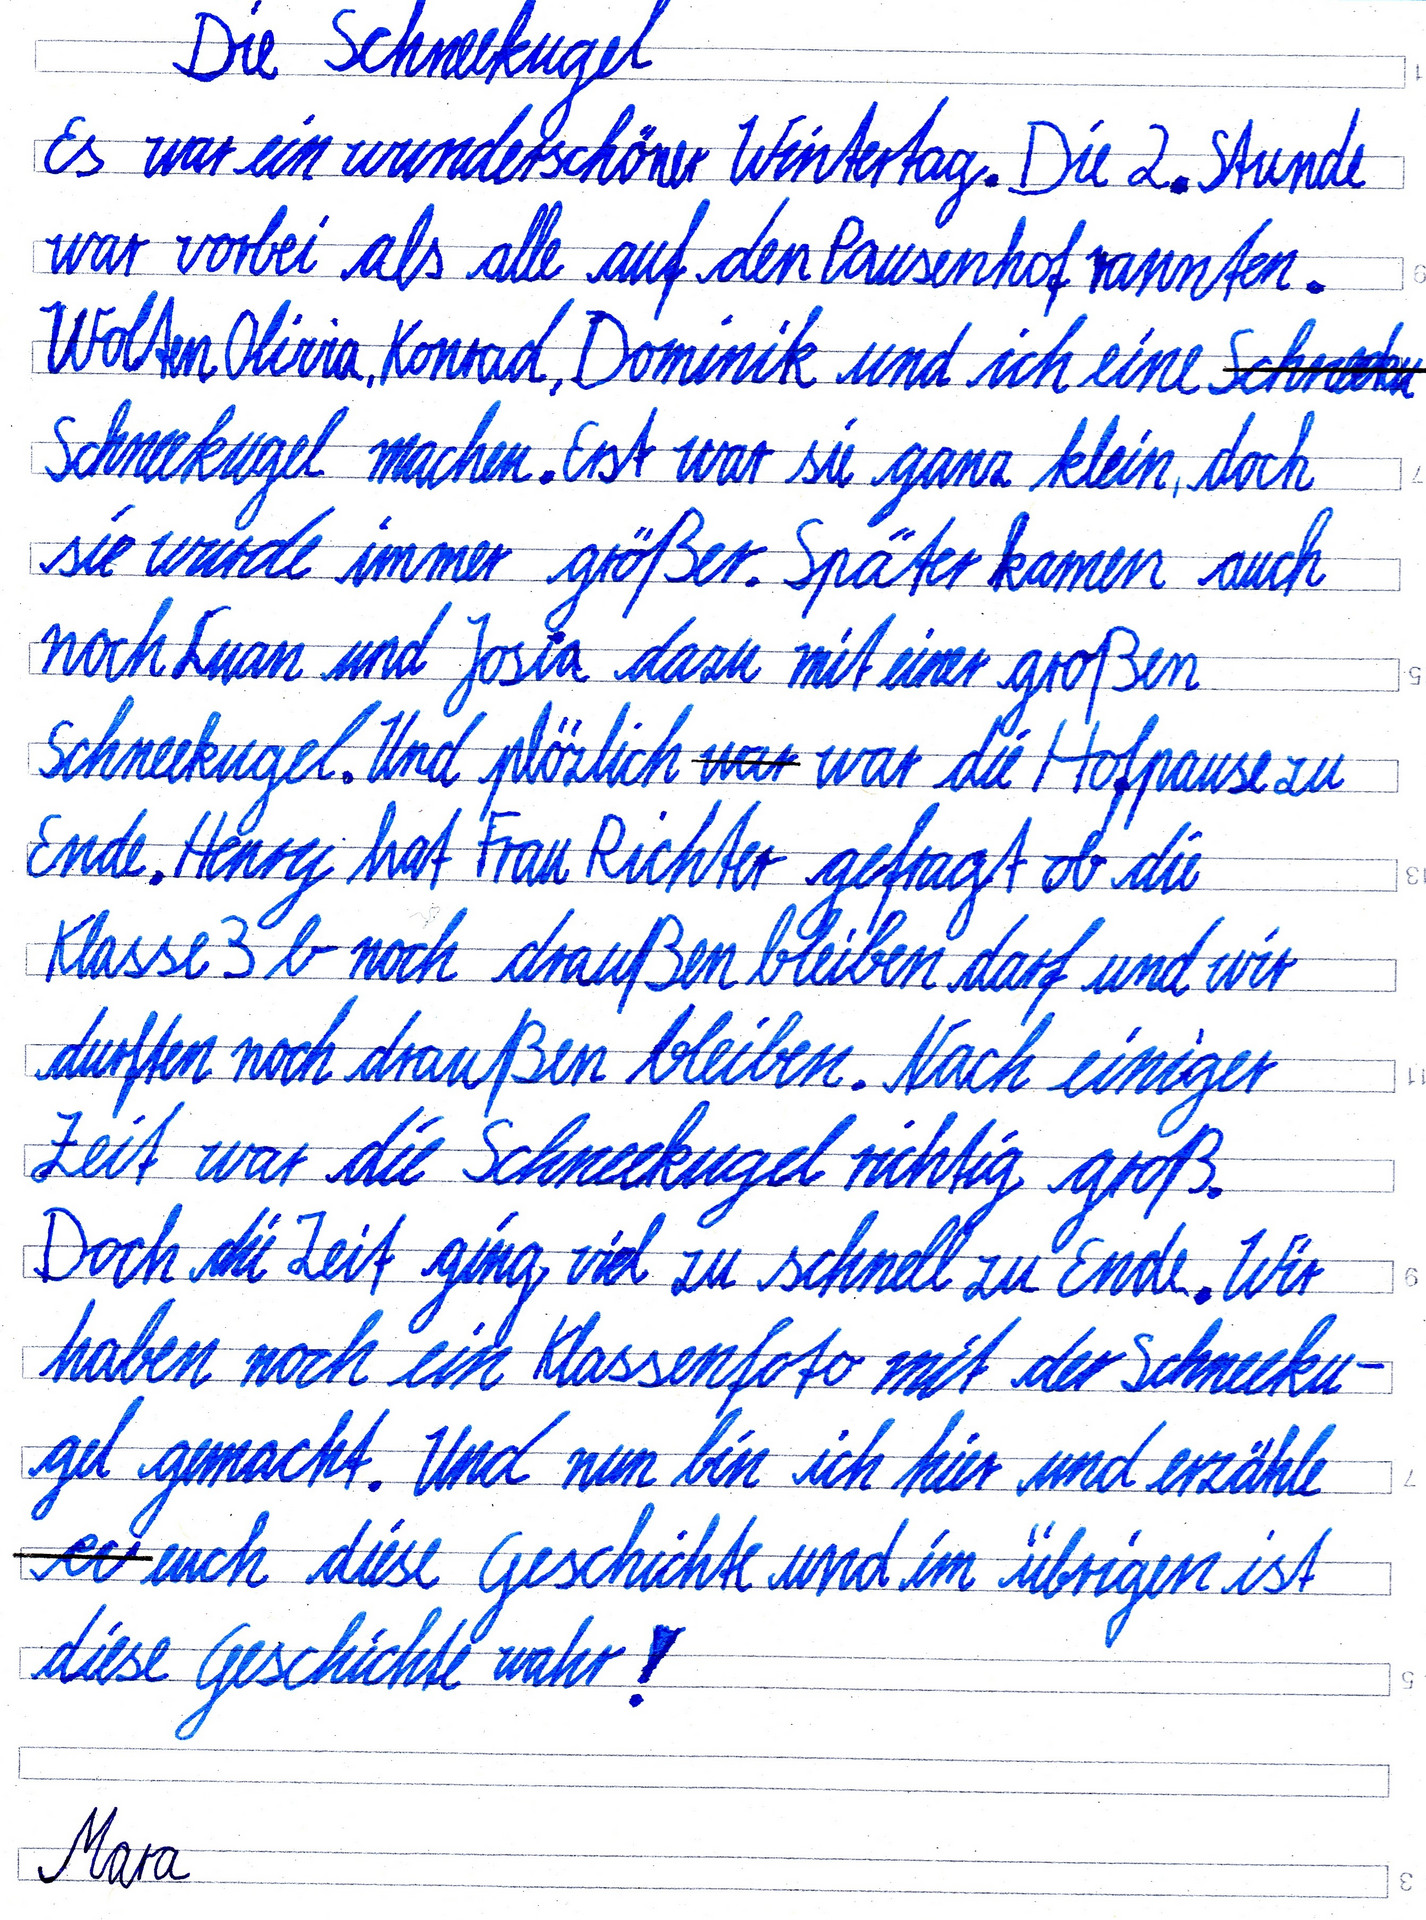 Die Schneekugel
Es war ein wunderschöner Wintertag. Die 2. Stunde
war vorbei als alle auf den Pausenhof rannten.
Wolten Olivia, Konrad, Dominik und ich eine Schneeku
Schneekugel machen. Erst war sie ganz klein, doch
sie wurde immer größer. Später kamen auch
noch Luan und Josia dazu mit einer großen
Schneekugel. Und plözlich war war die Hofpause zu
Ende. Henry hat Frau Richter gefragt ob die
Klasse 3 b noch draußen bleiben darf und wir
durften noch draußen bleiben. Nach einiger
Zeit war die Schneekugel richtig groß.
Doch die Zeit ging viel zu schnell zu Ende. Wir
haben noch ein Klassenfoto mit der Schneeku-
gel gemacht. Und nun bin ich hier und erzähle
eu euch diese Geschichte und im übrigen ist
diese Geschichte wahr!
Mara